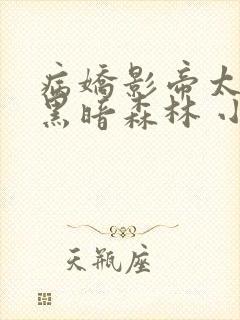 病嬌影帝太
黑暗森林 小
天瓶座